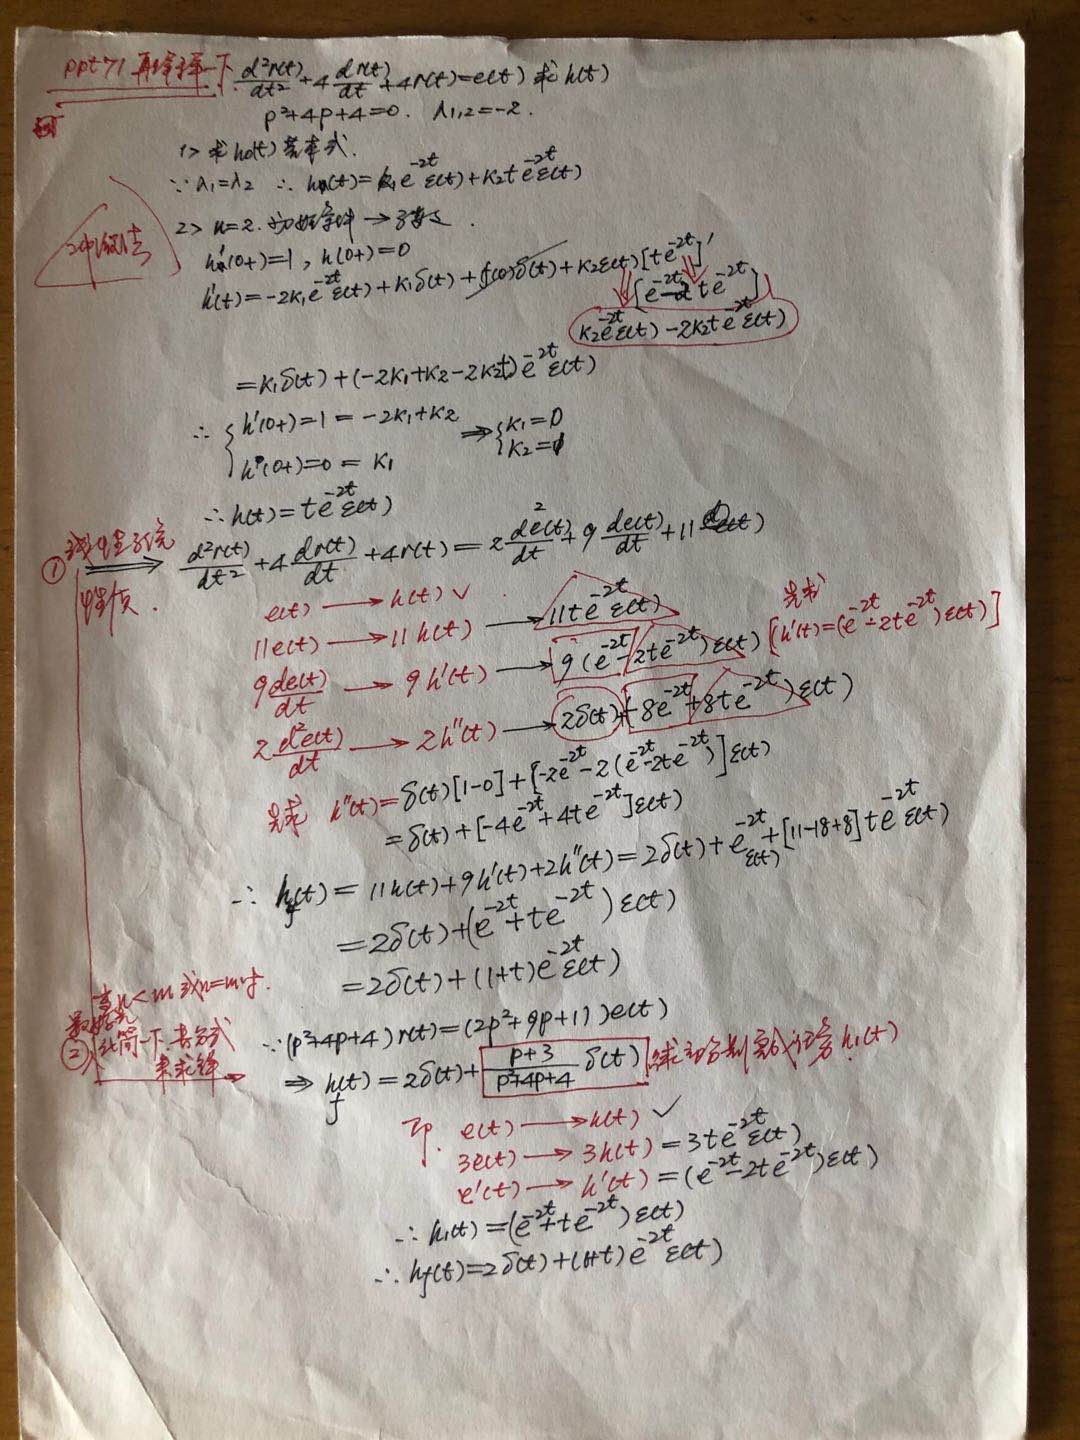 ppt71 再解释一下 d²r(t)/dt² + 4 dr(t)/dt + 4r(t) = e(t) 求 h(t)
p²+4p+4=0. λ1,2=-2.
1> 求h0(t)基本式.
∵ λ1=λ2 ∴ h0(t)=k1e^{-2t}ε(t)+k2te^{-2t}ε(t)
2> n=2. 初始条件→
h'(0+)=1, h(0+)=0
h'(t)=-2k1e^{-2t}ε(t)+k1δ(t)+f(0)δ(t)+k2ε(t)[te^{-2t}]'
[e^{-2t}-2te^{-2t}]
k2e^{-2t}ε(t)-2k2te^{-2t}ε(t)
=k1δ(t)+(-2k1+k2-2k2t)e^{-2t}ε(t)
∴ { h'(0+)=1=-2k1+k2 ⇒ { k1=0
h(0+)=0=k1 k2=1
∴ h(t)=te^{-2t}ε(t)
① 线性系统 ⇒ d²r(t)/dt² + 4 dr(t)/dt + 4r(t) = 2 d²e(t)/dt + 9 de(t)/dt + 11e(t)
性质.
e(t) → h(t) ✓
11e(t) → 11h(t) → 11te^{-2t}ε(t)
先求
9 de(t)/dt → 9h'(t) → 9(e^{-2t}-2te^{-2t})ε(t) [h'(t)=(e^{-2t}-2te^{-2t})ε(t)]
2 d²e(t)/dt → 2h''(t) → 2δ(t)+(-8e^{-2t}+8te^{-2t})ε(t)
先求 h''(t)=δ(t)[1-0]+[-2e^{-2t}-2(e^{-2t}-2te^{-2t})]ε(t)
=δ(t)+[-4e^{-2t}+4te^{-2t}]ε(t)
∴ hf(t)=11h(t)+9h'(t)+2h''(t)=2δ(t)+e^{-2t}ε(t)+[11-18+8]te^{-2t}ε(t)
=2δ(t)+(e^{-2t}+te^{-2t})ε(t)
=2δ(t)+(1+t)e^{-2t}ε(t)
当n<m 或n=m时.
② 化简一下
∵(p²+4p+4)r(t)=(2p²+9p+11)e(t)
来求解
⇒ hf(t)=2δ(t)+ (p+3)/(p²+4p+4) δ(t) h1(t)
即. e(t) → h(t) ✓
3e(t) → 3h(t)=3te^{-2t}ε(t)
e'(t) → h'(t)=(e^{-2t}-2te^{-2t})ε(t)
∴ h1(t)=(e^{-2t}+te^{-2t})ε(t)
∴ hf(t)=2δ(t)+(1+t)e^{-2t}ε(t)